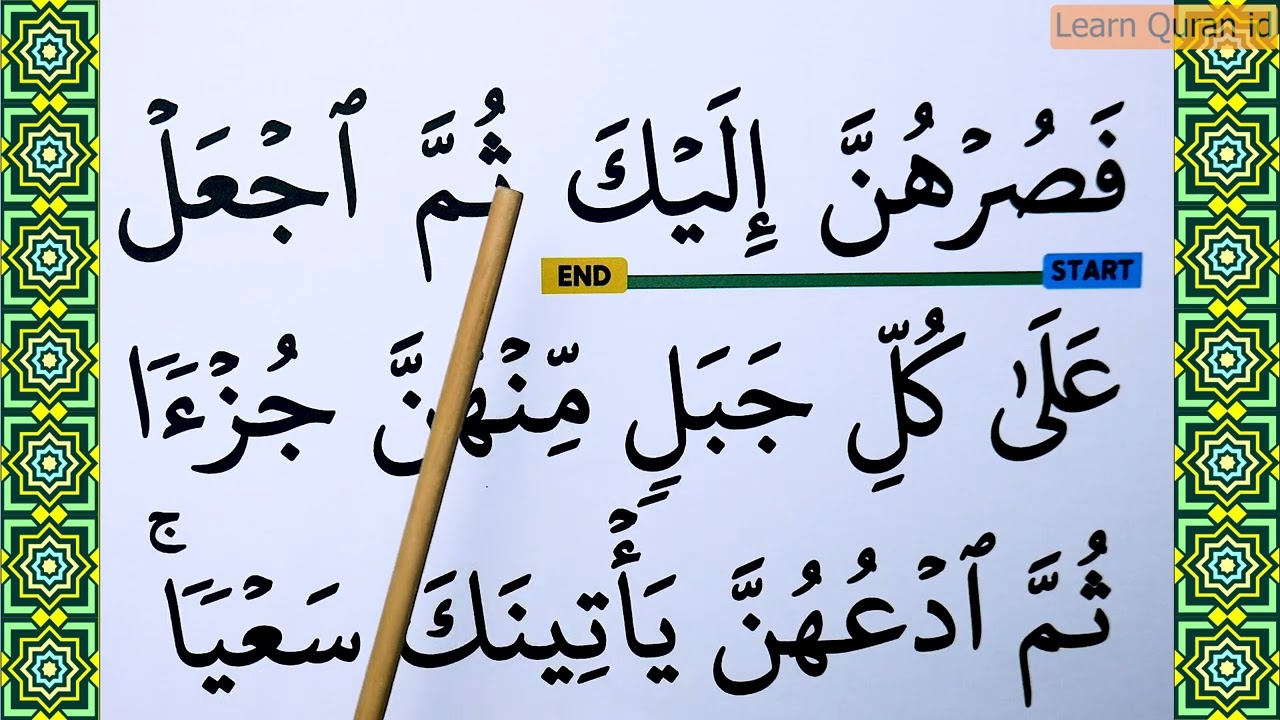 Learn Quran id
فَصُرۡهُنَّ إِلَيۡكَ ثُمَّ ٱجۡعَلۡ
END START
عَلَىٰ كُلِّ جَبَلٖ مِّنۡهُنَّ جُزۡءٗا
ثُمَّ ٱدۡعُهُنَّ يَأۡتِينَكَ سَعۡيٗاۚ